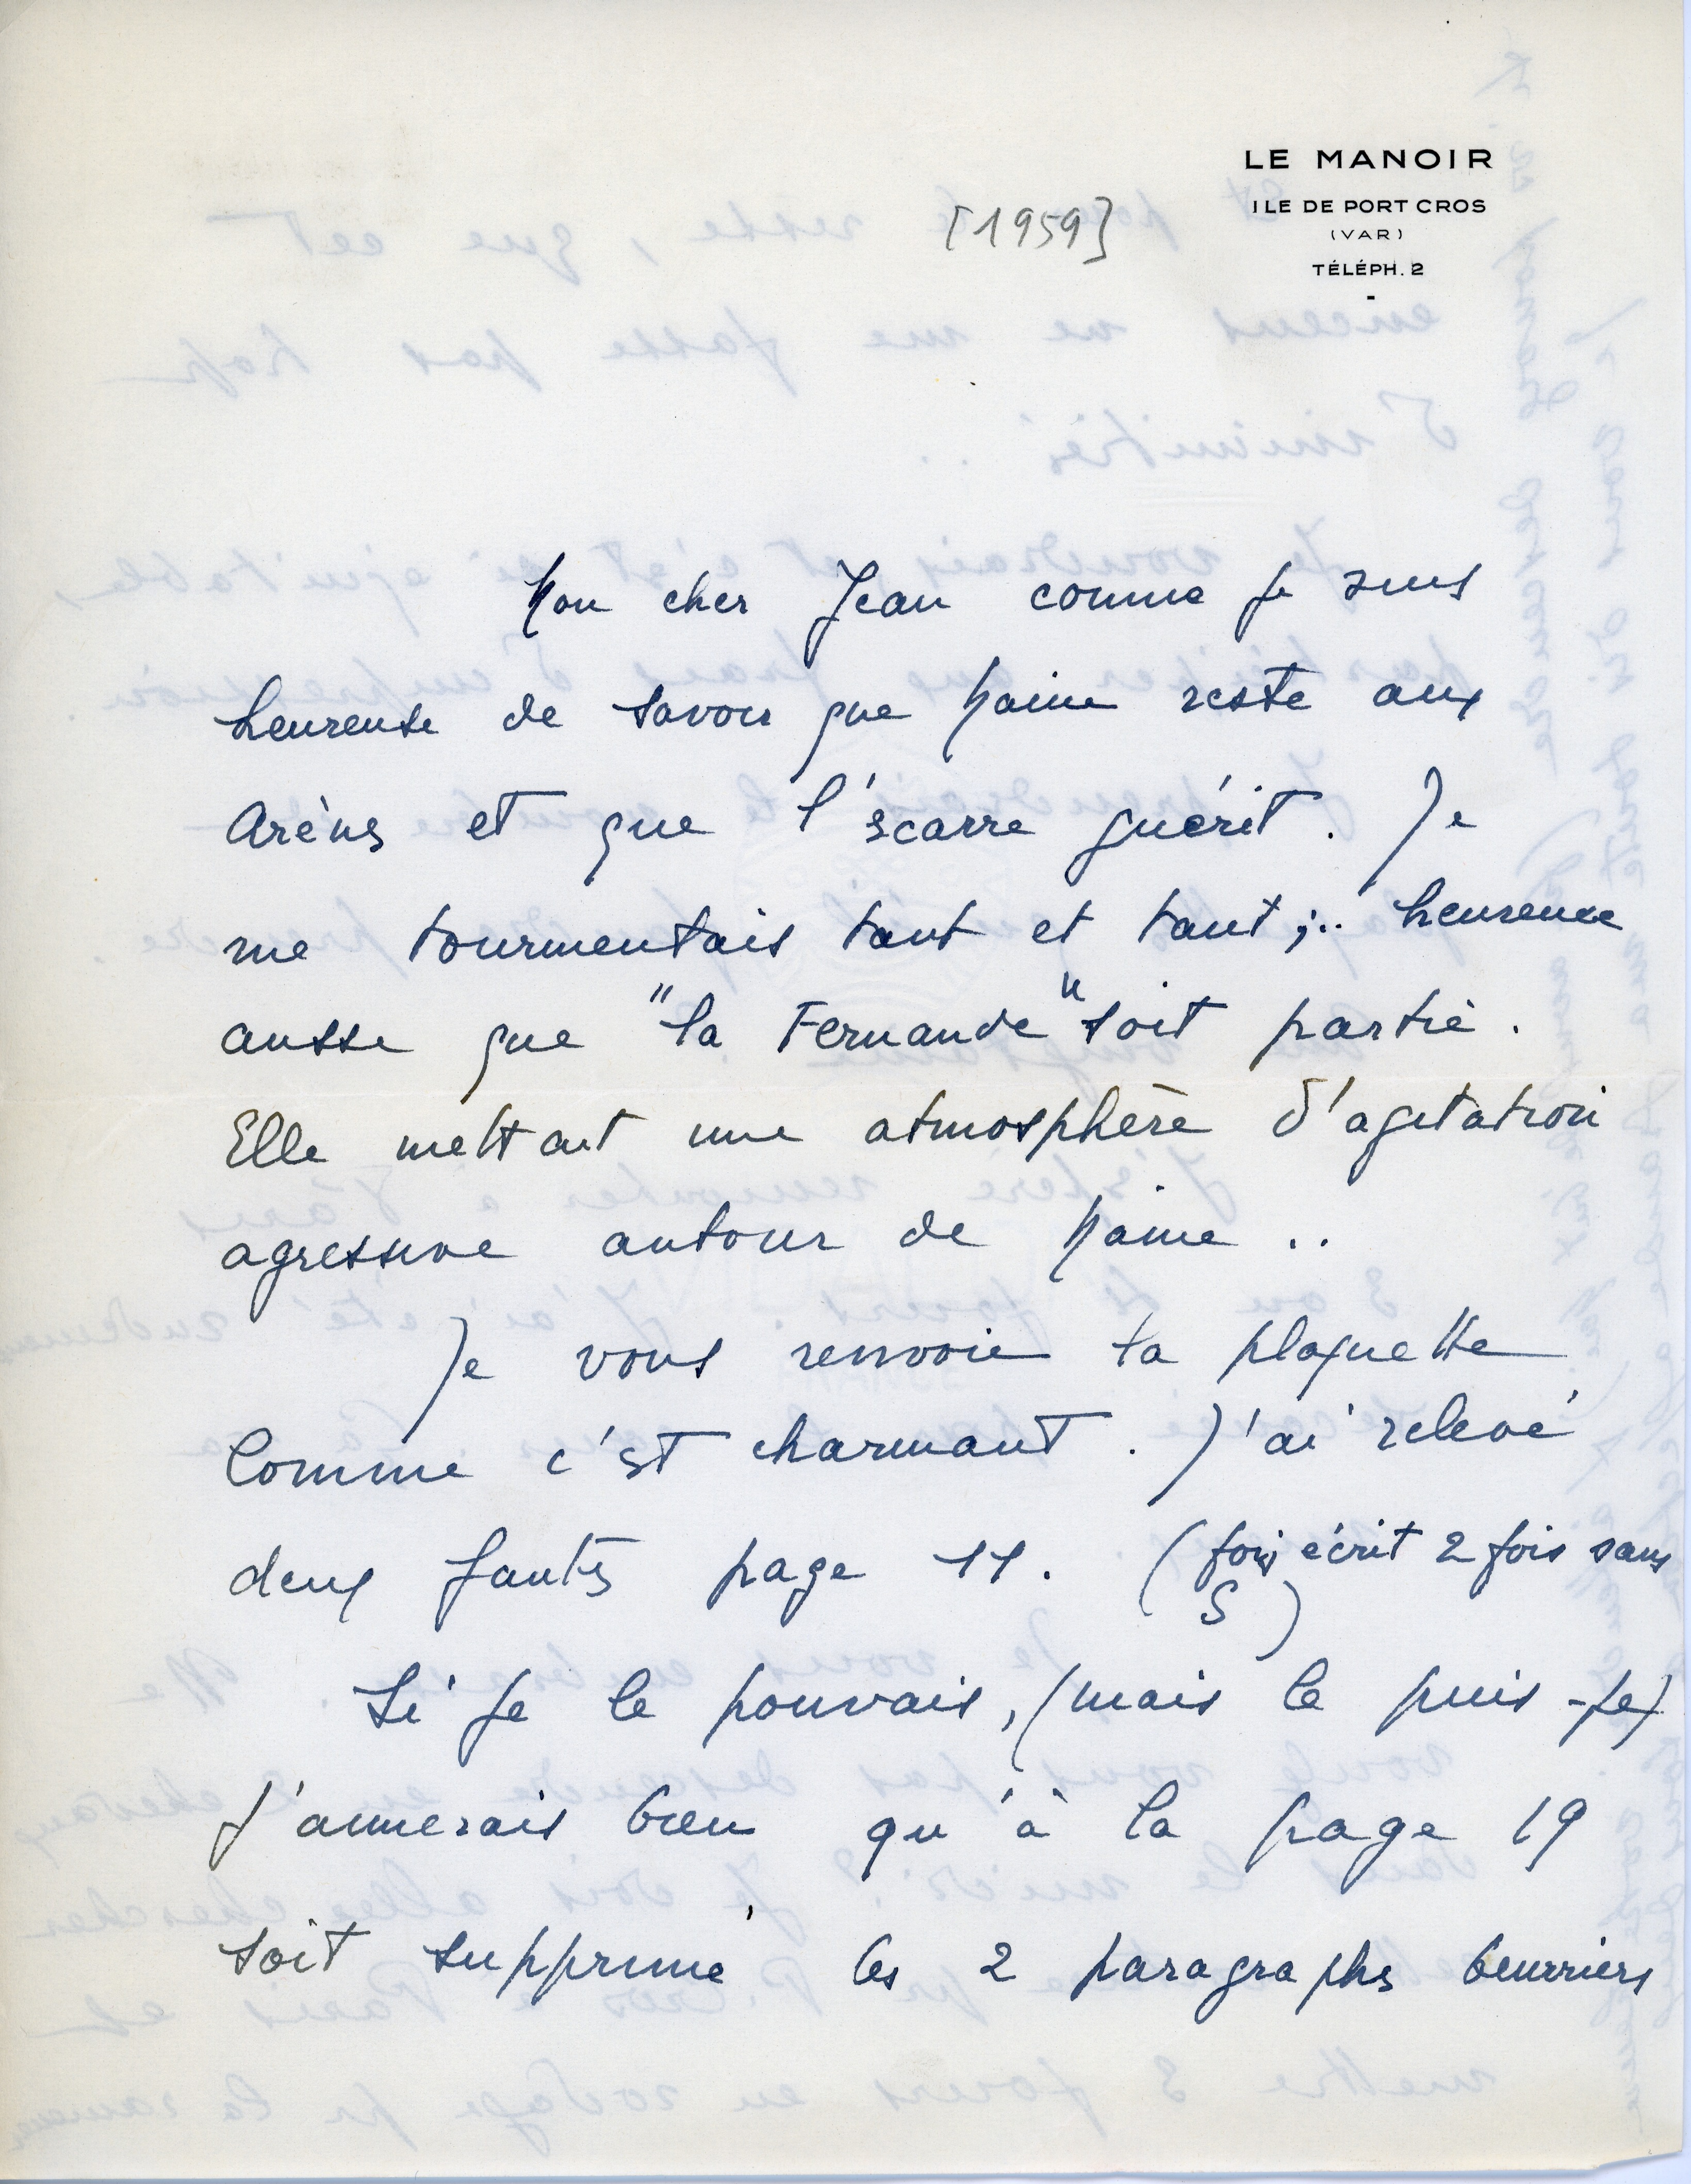 LE MANOIR
ILE DE PORT CROS
(VAR)
TÉLÉPH. 2
[1959]
Mon cher Jean comme je suis
heureuse de savoir que Maine reste aux
Arènes et que l'éscarre guérit. Je
me tourmentais tant et tant ;.. heureuse
aussi que "la Fernande" soit partie.
Elle mettait une atmosphère d'agitation
agressive autour de Maine ..
Je vous renvoie ta plaquette
Comme c'est charmant. J'ai relevé
deux fautes page 11. (fois écrit 2 fois sans
S)
Si je le pouvais, (mais le puis-je)
J'aimerais bien qu'à la page 19
soit supprimé les 2 paragraphes beurriers